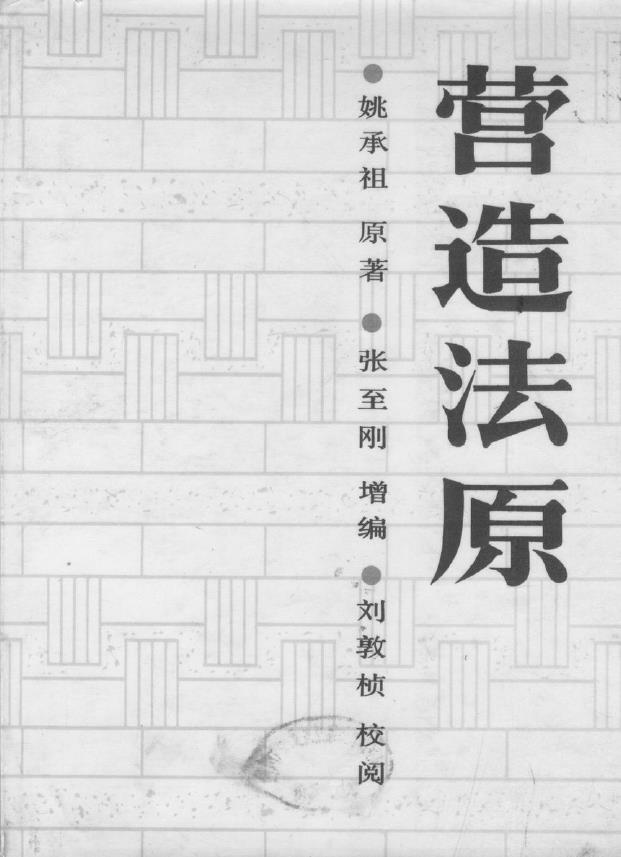 营造法原
●姚承祖 原著●张至刚 增编●刘敦桢 校阅